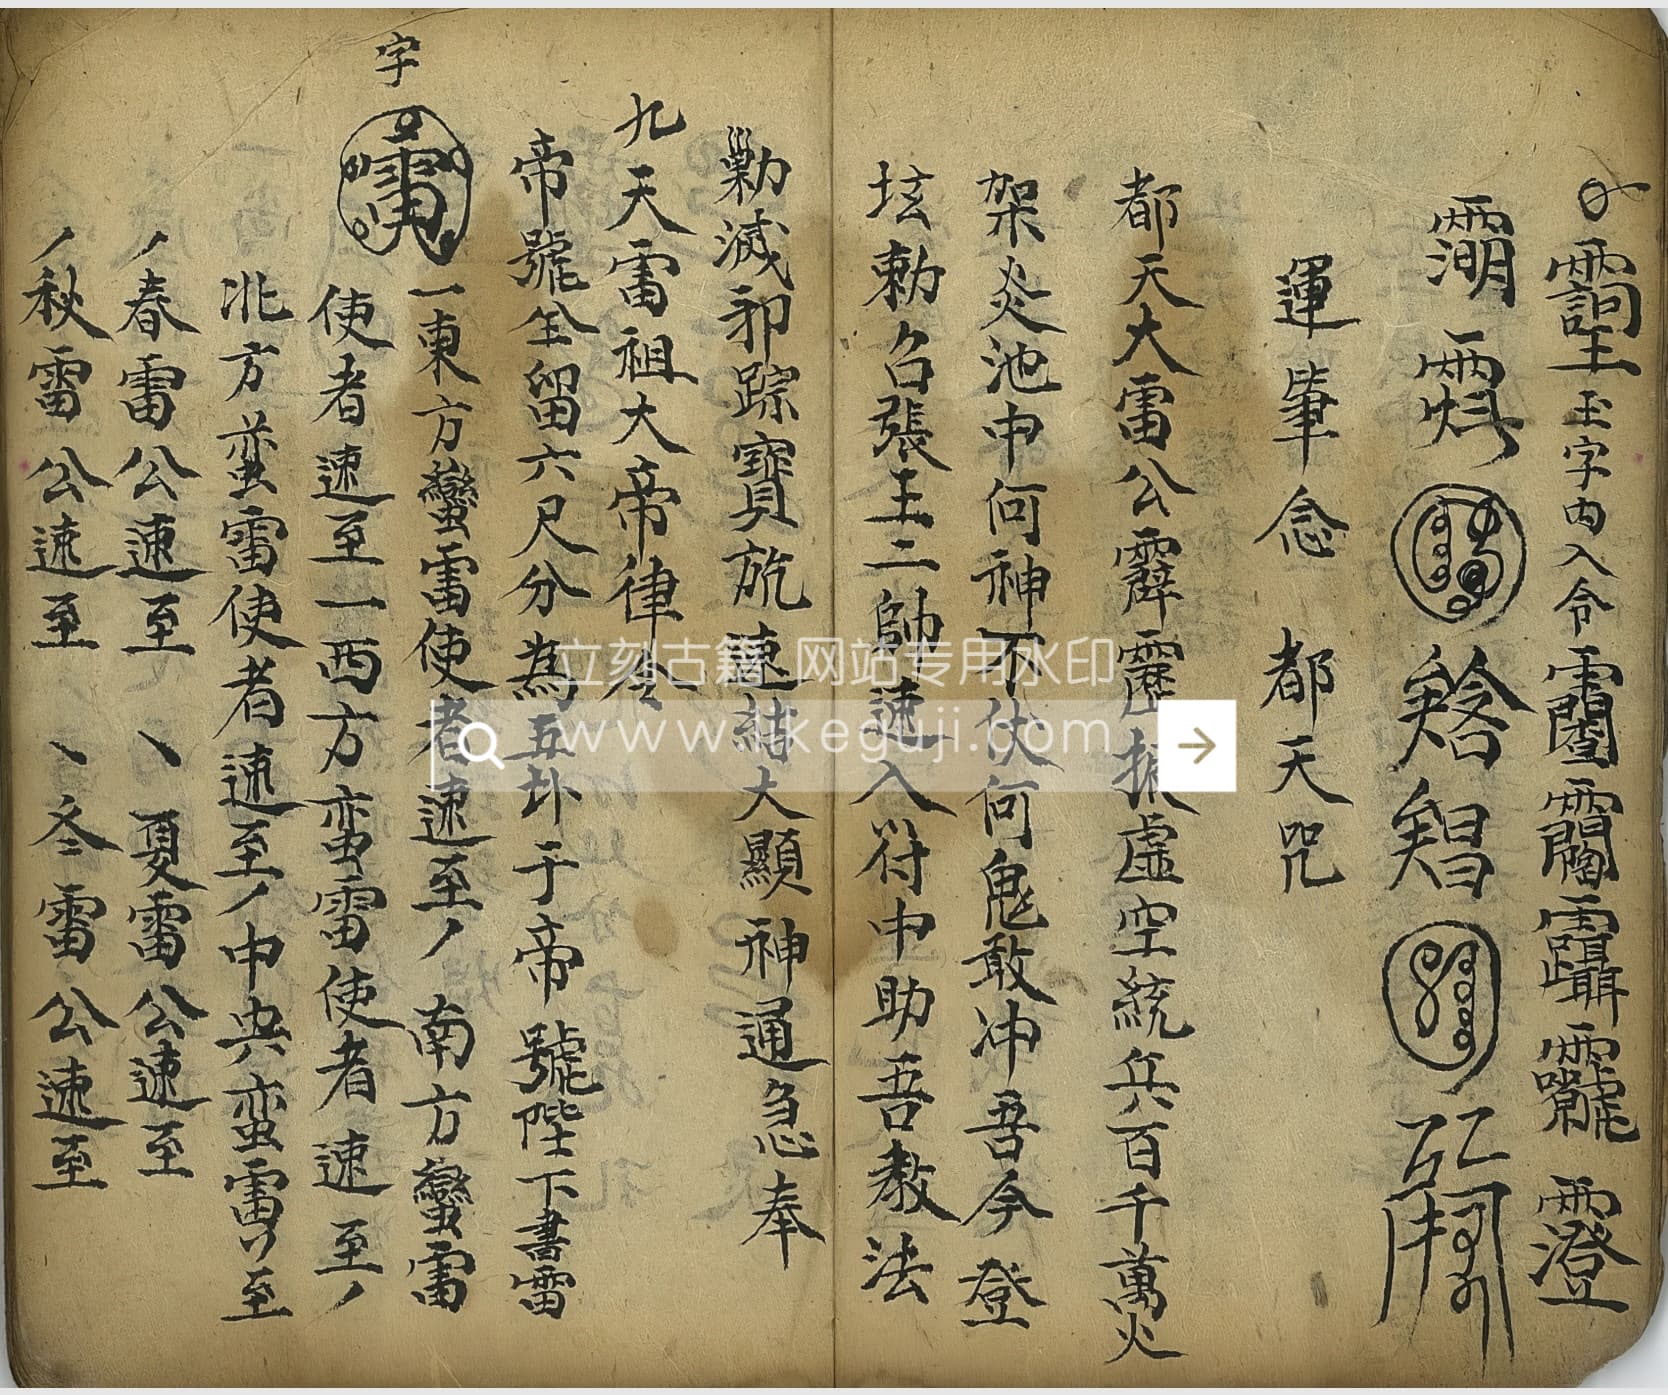 玉字内入令
運筆念 都天咒
都天大雷公霹靂振虛空統兵百千萬火
架炎池中何神不伏何鬼敢冲吾今登
坛勅召張王二帥速入符中助吾教法
勦滅邪踪寶旂速結大顯神通急奉
九天雷祖大帝律令
帝號全留六尺分為五卦于帝號陛下書雷
字
雷一東方蠻雷使者速至ノ南方蠻雷
使者速至一西方蛮雷使者速至ノ
北方蛮雷使者速至ノ中央蛮雷〃至
ノ春雷公速至 、夏雷公速至
ノ秋雷公速至 、冬雷公速至
立刻古籍 网站专用水印
www.lkeguji.com